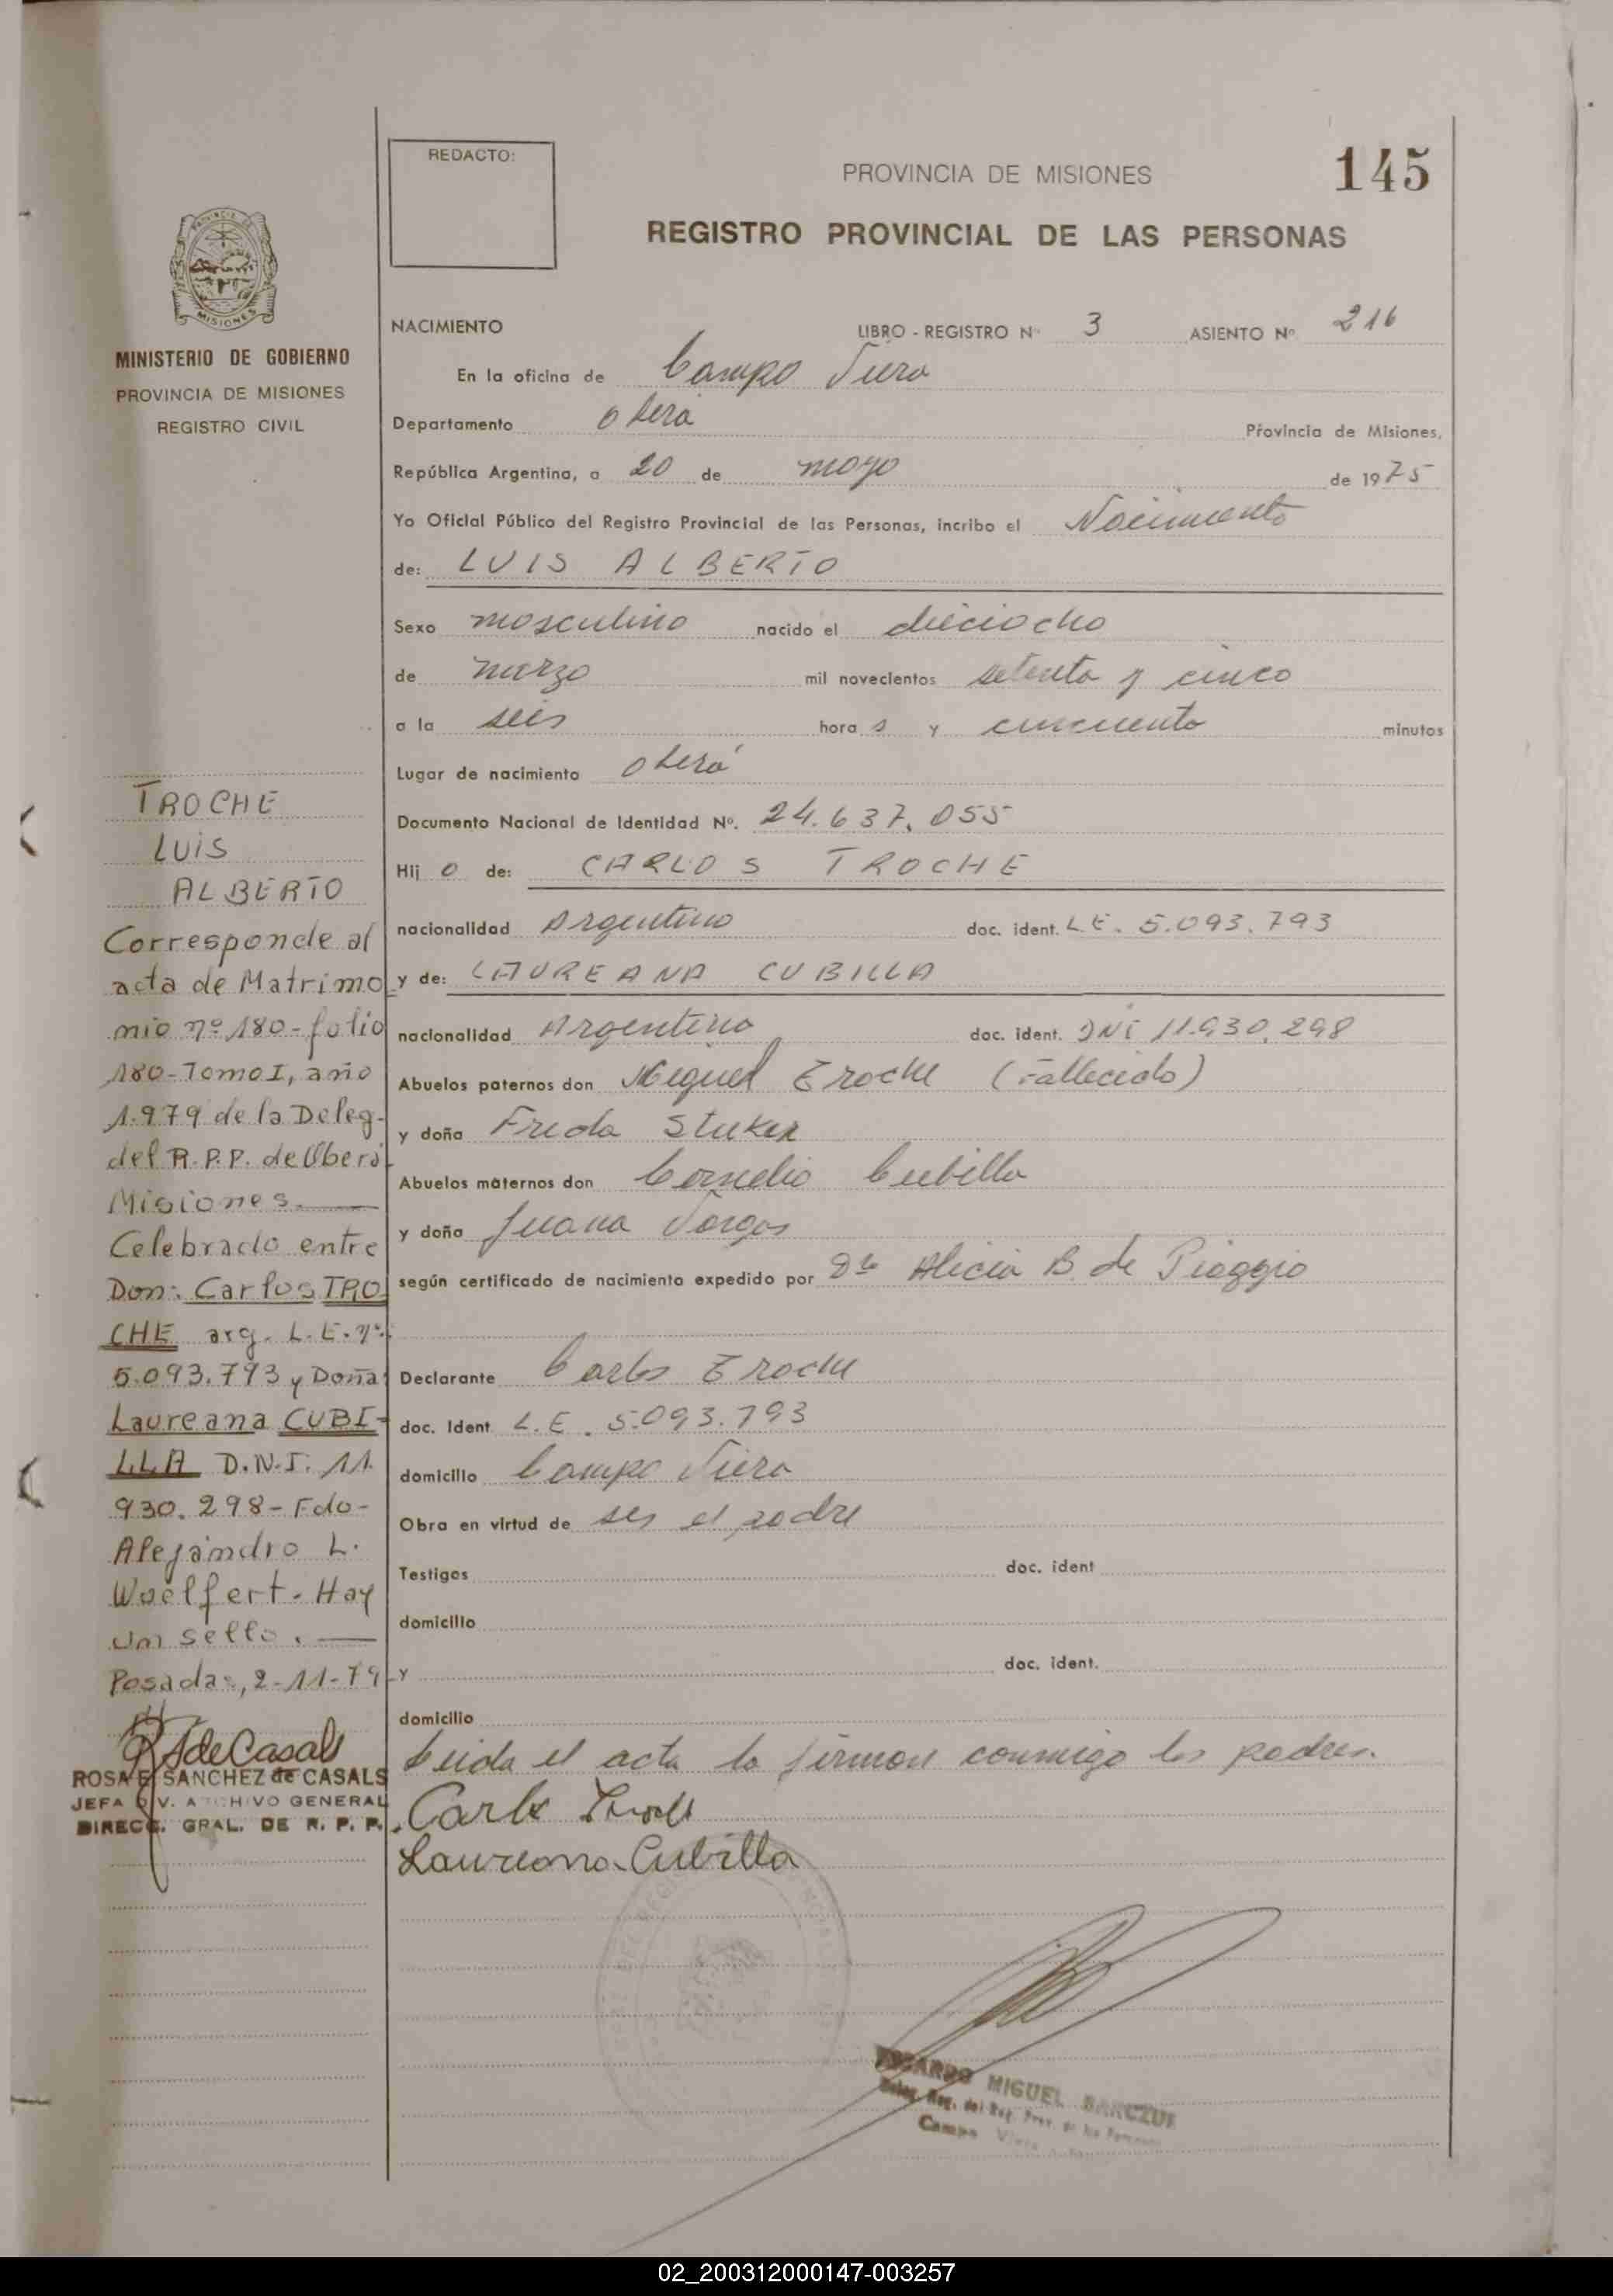 REDACTO:
PROVINCIA DE MISIONES
145
REGISTRO PROVINCIAL DE LAS PERSONAS
MISIONES
MINISTERIO DE GOBIERNO
PROVINCIA DE MISIONES
REGISTRO CIVIL
NACIMIENTO LIBRO - REGISTRO Nº 3 ASIENTO Nº 216
En la oficina de Campo Viera
Departamento Oberá Provincia de Misiones,
República Argentina, a 20 de mayo de 1975
Yo Oficial Público del Registro Provincial de las Personas, incribo el Nacimiento
de: LUIS ALBERTO
Sexo masculino nacido el dieciocho
de marzo mil novecientos setenta y cinco
a la seis hora s y cincuenta minutos
Lugar de nacimiento Oberá
Documento Nacional de Identidad Nº. 24.637.055
Hij o de: CARLOS TROCHE
nacionalidad Argentino doc. ident. L E. 5.093.793
y de: LAUREANA CUBILLA
nacionalidad Argentina doc. ident. DNI 11.930.298
Abuelos paternos don Miguel Troche (Fallecido)
y doña Freda Stuker
Abuelos maternos don Cornelio Cubilla
y doña Juana Vargas
según certificado de nacimiento expedido por Dra Alicia B. de Piaggio
Declarante Carlos Troche
doc. Ident. L.E. 5.093.793
domicilio Campo Viera
Obra en virtud de ser el padre
Testigos doc. ident
domicilio
y doc. ident.
domicilio
Leida el acta la firman conmigo los padres.
Carlos Troche
Laureana Cubilla
MIGUEL
Campo Viera
TROCHE
LUIS
ALBERTO
Corresponde al
acta de Matrimo
nio nº 180-folio
180-Tomo I, año
1.979 de la Deleg.
del R.P.P. de Oberá
Misiones.
Celebrado entre
Don: Carlos TRO
CHE arg. L.E. nº
5.093.793 y Doña
Laureana CUBI-
LLA D.N.I. 11.
930.298- Fdo-
Alejandro L.
Woelfert. Hay
un sello.
Posadas, 2-11-79
RSdeCasals
ROSA E. SANCHEZ de CASALS
JEFA DIV. ARCHIVO GENERAL
DIRECC. GRAL. DE R. P. P.
02_200312000147-003257